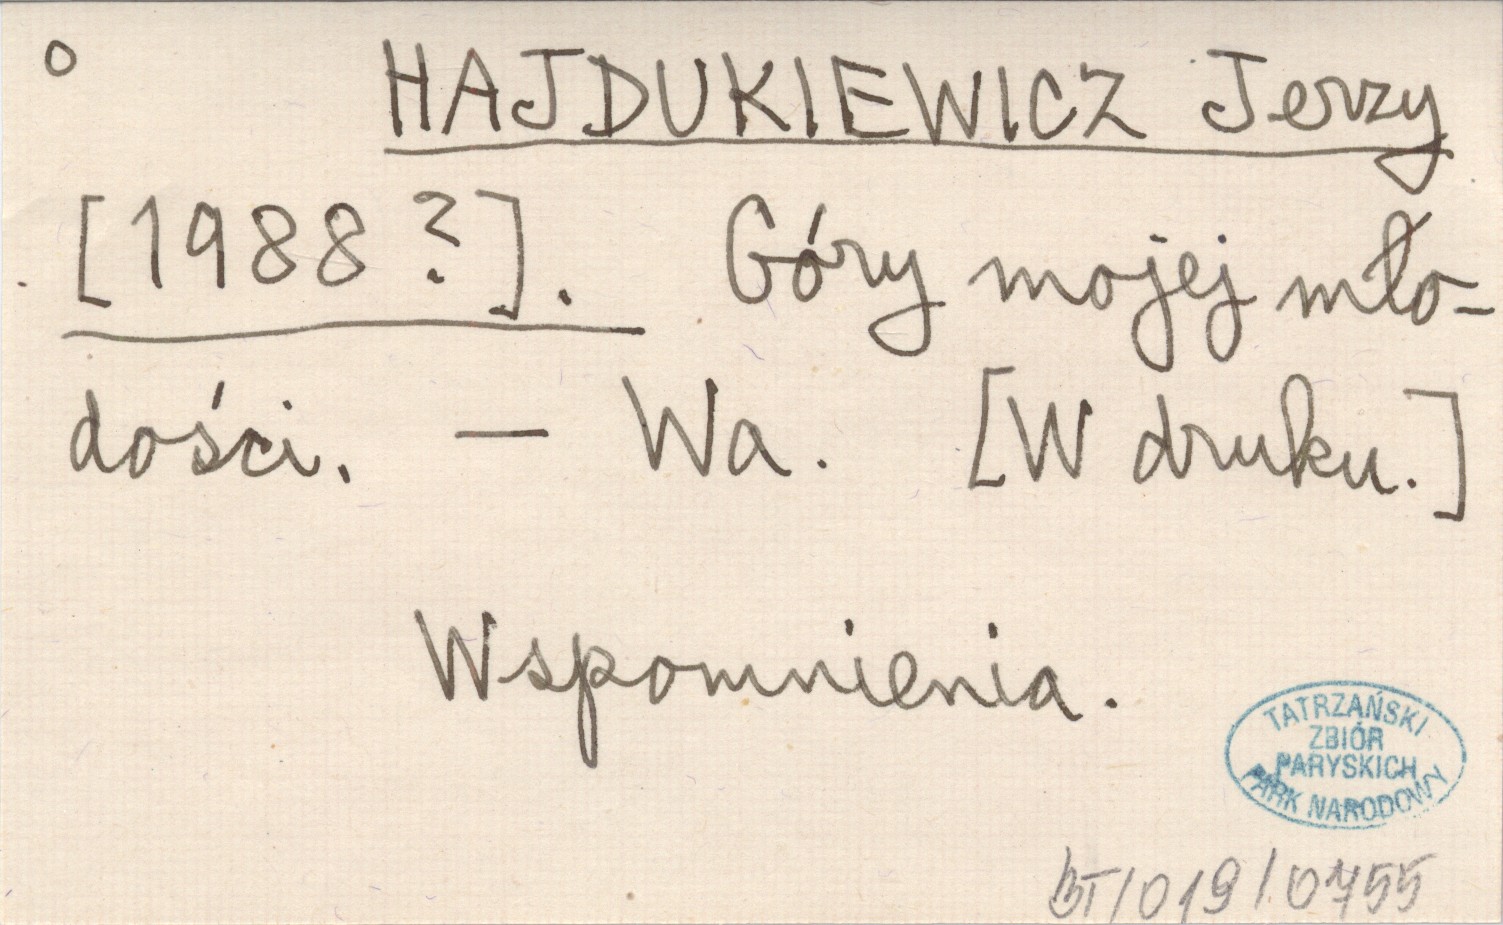 o HAJDUKIEWICZ Jerzy
[1988?]. Góry mojej mło-
dości. — Wa. [W druku.]
Wspomnienia.
TATRZAŃSKI
ZBIÓR
PARYSKICH
PARK NARODOWY
BT/019/0755